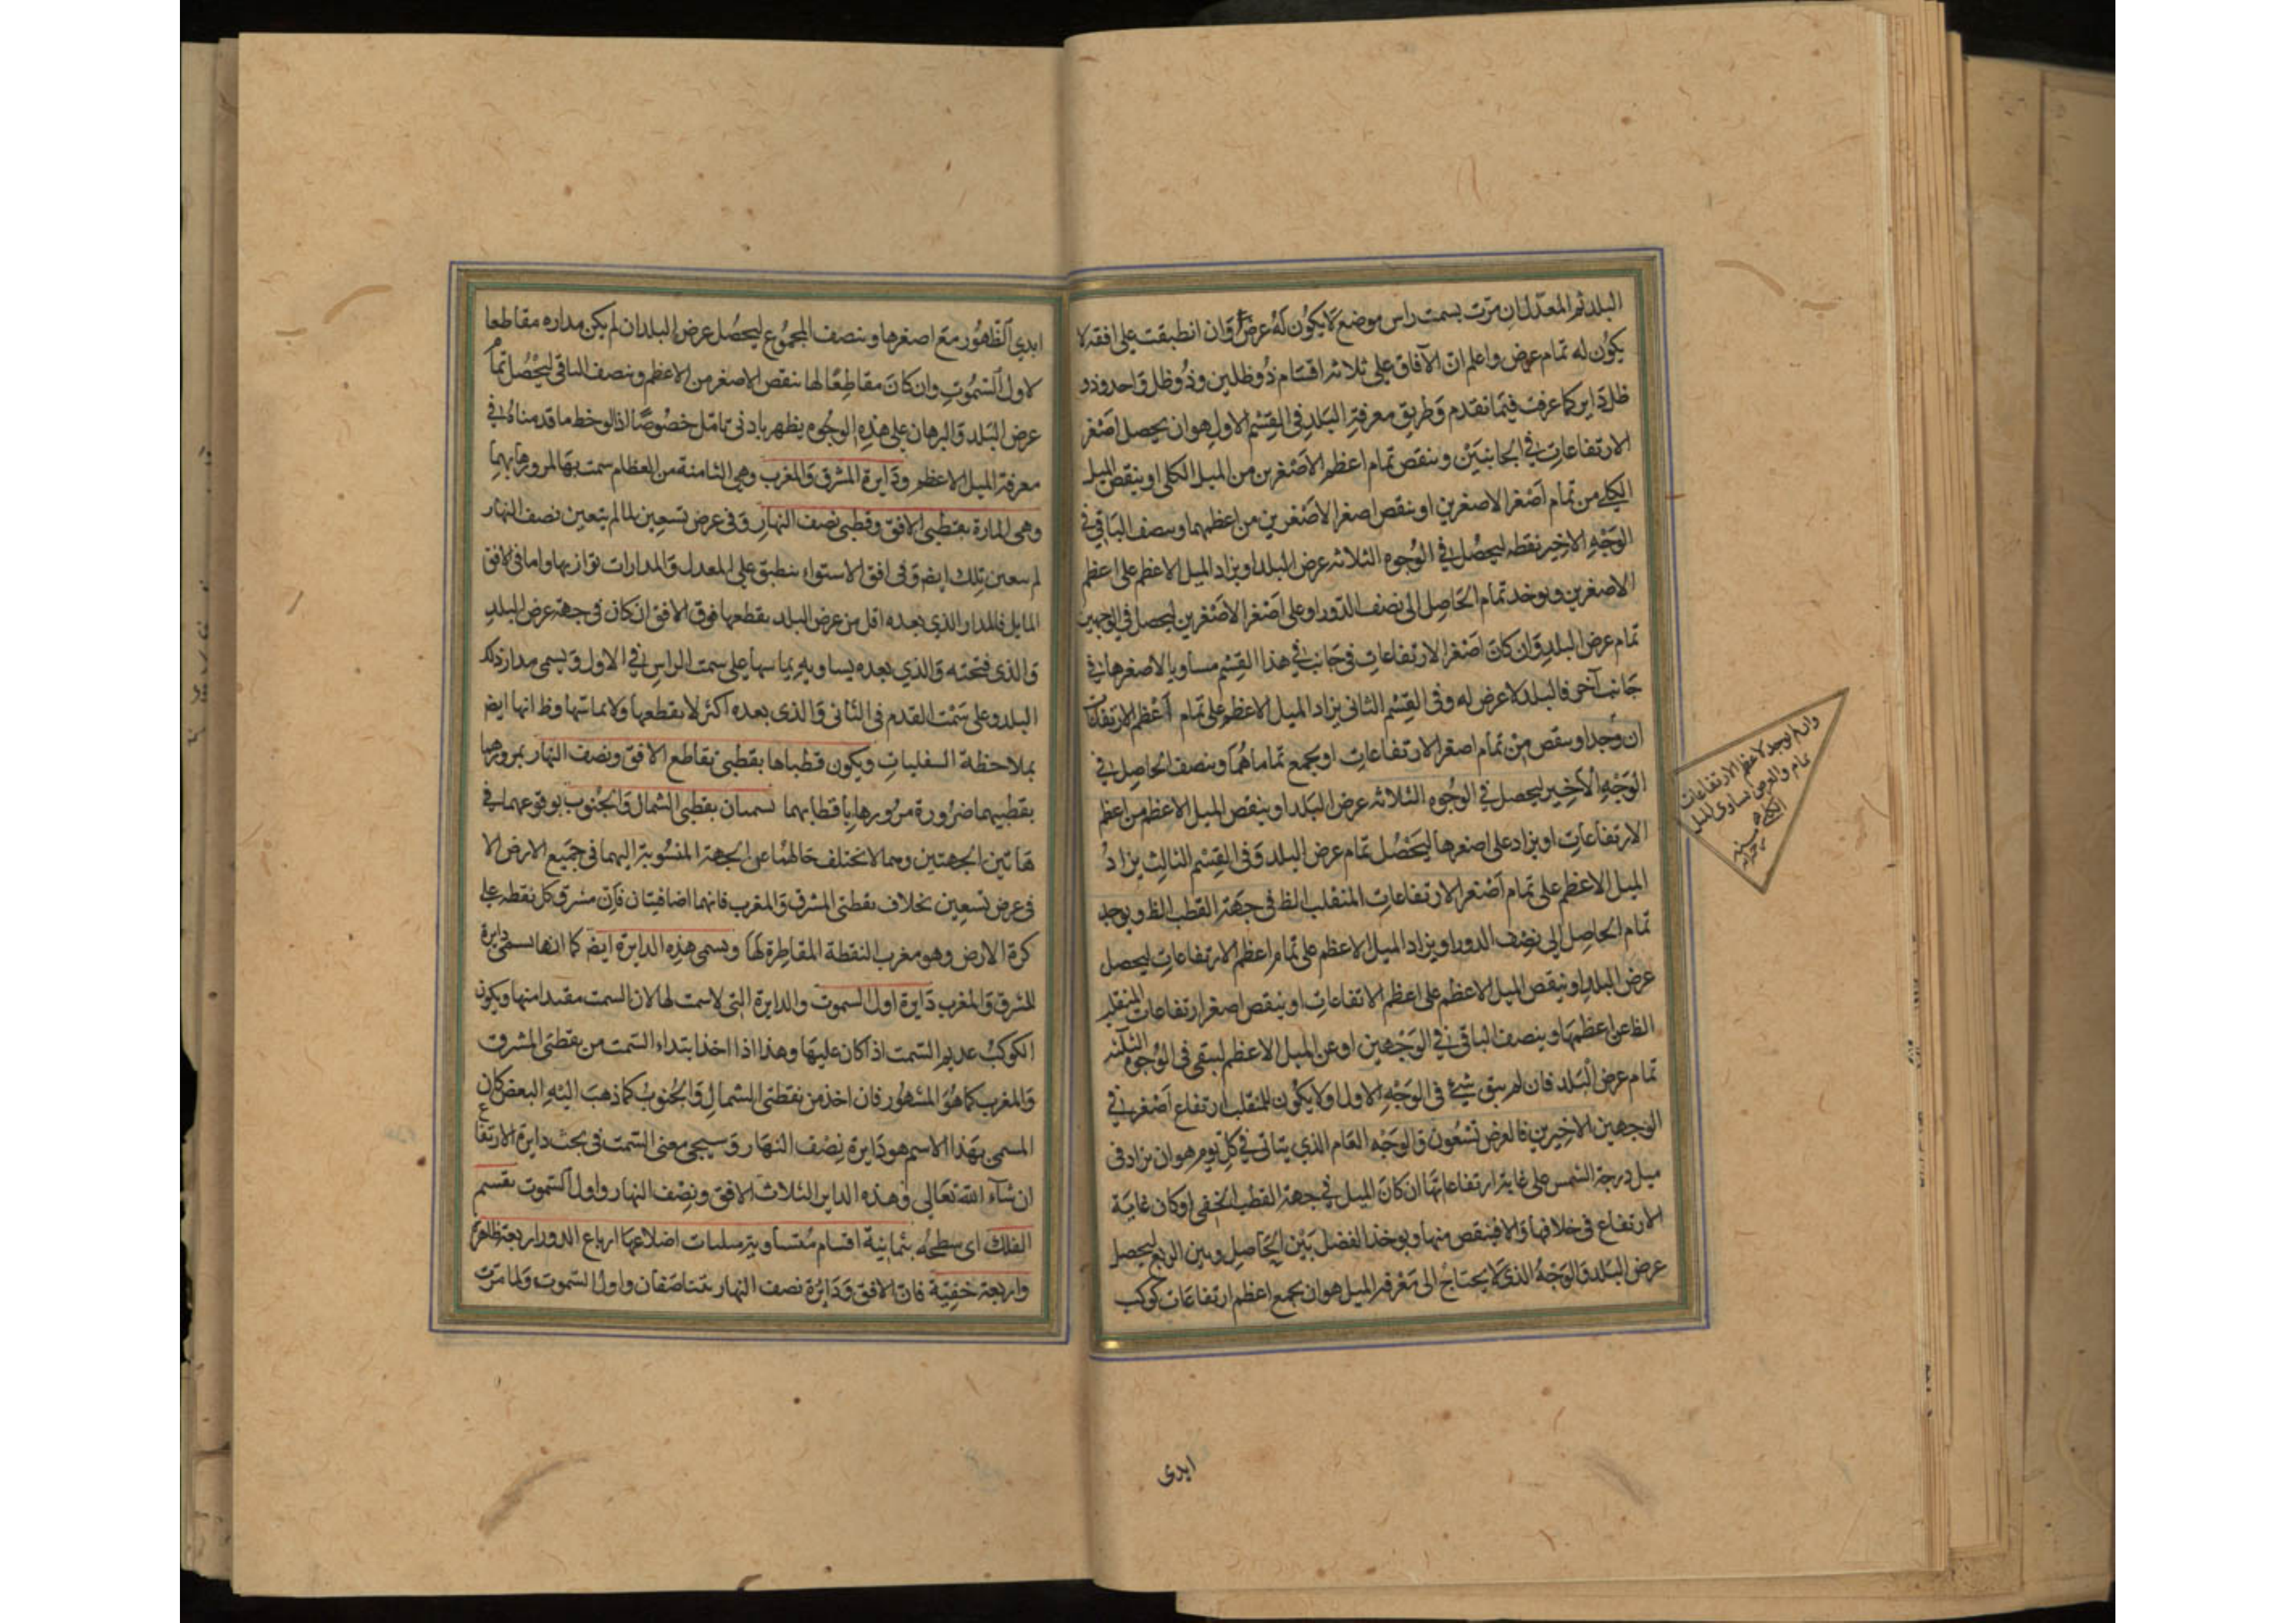 البلد ثم المعدل ان مرّت بسمت راس موضع لا يكون له عرض وان انطبقت على افقه لا
يكون له تمام عرض واعلم ان الآفاق على ثلاثة اقسام ذو ظلين وذو ظل واحد وذو
ظل داير كما عرفت فيما تقدم وطريق معرفة البلد في القسم الاول هو ان يحصل اصغر
الارتفاعات في الجانبين وينقص تمام اعظم الاصغرين من الميل الكلي او ينقص الميل
الكلي من تمام اصغر الاصغرين او ينقص اصغر الاصغرين من اعظمهما وينصف الباقي في
الوجه الاخير نقطه ليحصل في الوجوه الثلاثه عرض البلد او يزاد الميل الاعظم على اعظم
الاصغرين ويوخد تمام الحاصل الى نصف الدور او على اصغر الاصغرين ليحصل في الوجهين
تمام عرض البلد وان كان اصغر الارتفاعات في جانب في هذا القسم مساويا لاصغرها في
جانب آخر فالبلد لا عرض له وفي القسم الثاني يزاد الميل الاعظم على تمام اعظم الارتفاعات
ان وجد او ينقص من تمام اصغر الارتفاعات او يجمع تماماهما وينصف الحاصل في
الوجه الاخير ليحصل في الوجوه الثلاثه عرض البلد او ينقص الميل الاعظم من اعظم
الارتفاعات او يزاد على اصغرها ليحصل تمام عرض البلد وفي القسم الثالث يزاد
الميل الاعظم على تمام اصغر الارتفاعات المنقلب الظ في جهة القطب الظ ويوجد
تمام الحاصل الى نصف الدور او يزاد الميل الاعظم على تمام اعظم الارتفاعات ليحصل
عرض البلد او ينقص الميل الاعظم على اعظم الاتفاعات او ينقص اصغر ارتفاعات المنقلب
الظ عن اعظمها وينصف الباقي في الوجهين او عن الميل الاعظم ليبقى في الوجوه الثلثه
تمام عرض البلد فان لم يبق شئ في الوجه الاول او لا يكون للمنقلب ارتفاع اصغر في
الوجهين الاخيرين فالعرض تسعون والوجه العام الذي يتاتى في كل يوم هو ان يزاد في
ميل درجة الشمس على غاية ارتفاعاتها ان كان الميل في جهة القطب الخفي او كان غاية
الارتفاع في خلافها والا فينقص منها ويوخذ الفضل بين الحاصل وبين الربع ليحصل
عرض البلد والوجه الذي لا يحتاج الى معرفة الميل هو ان يجمع اعظم ارتفاعات كوكب
وان لم يوجد لاعظم الارتفاعات
تمام والعرض يساوي الميل
الكلي
ابدى
ابدي الظهور مع اصغرها وينصف المجموع ليحصل عرض البلد ان لم يكن مداره مقاطعا
لاول السموت وان كان مقاطعا لها ينقص الاصغر من الاعظم وينصف الباقي ليحصل تمام
عرض البلد والبرهان على هذه الوجوه يظهر بادنى تامّل خصوصا اذا لوحظ ما قدمناه في
معرفة الميل الاعظم ودايرة المشرق والمغرب وهي الثامنة من العظام سمت بها لمرورها بهما
وهي المارة بقطبي الافق وقطبي نصف النهار وفي عرض تسعين لما لم يتعين نصف النهار
لم يتعين تلك ايضا وفي افق الاستواء ينطبق على المعدل والمدارات توازيها واما في الافق
المايل فالمدار الذي بعده اقل من عرض البلد يقطعها فوق الافق ان كان في جهة عرض البلد
والذي تحته والذي بعده يساويه يماسها على سمت الراس في الاول ويسمى مدار ذلك
البلد وعلى سمت القدم في الثاني والذي بعده اكثر لا يقطعها ولا يماسها وظ انها ايض
بملاحظة السفليات ويكون قطباها بقطتي تقاطع الافق ونصف النهار بمرورهما
بقطبيهما ضرورة مرورها باقطابهما تسميان بقطتي الشمال والجنوب لوقوعهما في
هاتين الجهتين وهما لا تختلف حالهما عن الجهة المنسوبة اليهما في جميع الارض الا
في عرض تسعين بخلاف نقطتي المشرق والمغرب فانهما اضافيتان فان مشرق كل نقطه على
كرة الارض وهو مغرب النقطة المقاطرة لها وتسمى هذه الدايرة ايض كما انها تسمى دايرة
المشرق والمغرب دايرة اول السموت والدايرة التي لا سمت لها لان السمت مقيد امنها ويكون
الكوكب عديم السمت اذا كان عليها وهذا اذا اخذ ابتداء السمت من نقطتي المشرق
والمغرب كما هو المشهور فان اخذ من نقطتي الشمال والجنوب كما ذهب اليه البعض كان
المسمى بهذا الاسم هو دايرة نصف النهار وسيجي معنى السمت في بحث دايرة الارتفاع
ان شاء الله تعالى وهذه الداير الثلاث الافق ونصف النهار واول السموت يقسم
الفلك اى سطحه بثمانية اقسام متساوية مثلثات اضلاعها ارباع الدور اربعة ظاهرة
واربعة خفيّة فان الافق ودايرة نصف النهار يتناصفان واول السموت ولما مرّت